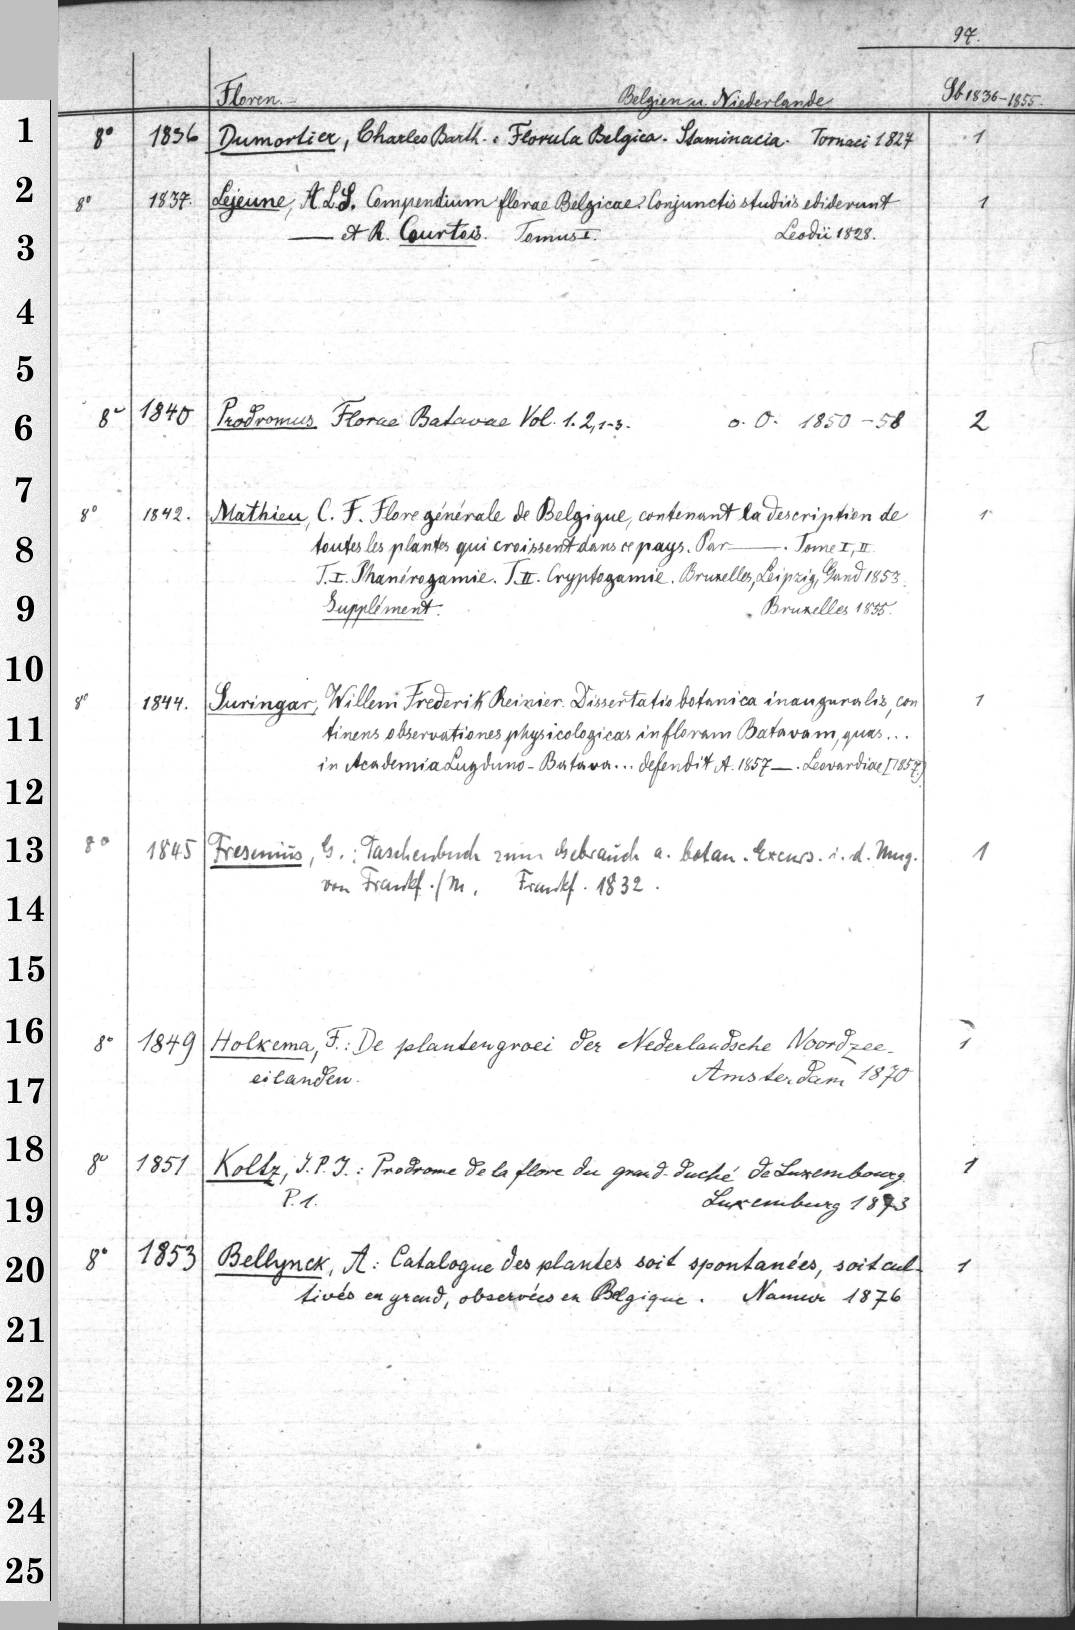 97.
Floren. Belgien u. Niederlande Sb 1836-1855.
1 8° 1836 Dumortier, Charles Barth. : Florula Belgica. Staminacia. Tornaci 1827 1
2 8° 1837. Lejeune, A. L. S. Compendium florae Belgicae. Conjunctis studiis ediderunt 1
3 —— et R. Courtois. Tomus I. Leodii 1828.
4
5
6 8° 1840 Prodromus Florae Batavae Vol. 1. 2,1-3. o. O. 1850-58 2
7 8° 1842. Mathieu, C. F. Flore générale de Belgique, contenant la description de 1
8 toutes les plantes qui croissent dans ce pays. Par ——. Tome I, II
T. I. Phanérogamie. T. II. Cryptogamie. Bruxelles, Leipzig, Gand 1853.
9 Supplément. Bruxelles 1855.
10 8° 1844. Suringar, Willem Frederik Reinier. Dissertatio botanica inauguralis, con 1
11 tinens observationes physicologicas in floram Batavam, quas...
12 in Academia Lugduno-Batava... defendit A. 1857 —. Leovardiae [1857.]
13 8° 1845 Fresenius, G. : Taschenbuch zum Gebrauch a. botan. Excurs. i. d. Umg. 1
14 von Frankf./M. Frankf. 1832.
15
16 8° 1849 Holkema, F. : De plantengroei der Nederlandsche Noordzee- 1
17 eilanden. Amsterdam 1870
18 8° 1851 Koltz, J. P. J. : Prodrome de la flore du grand-duché de Luxembourg. 1
19 P. 1. Luxemburg 1873
20 8° 1853 Bellynck, A : Catalogue des plantes soit spontanées, soit cul- 1
tivés en grand, observées en Belgique. Namur 1876
21
22
23
24
25